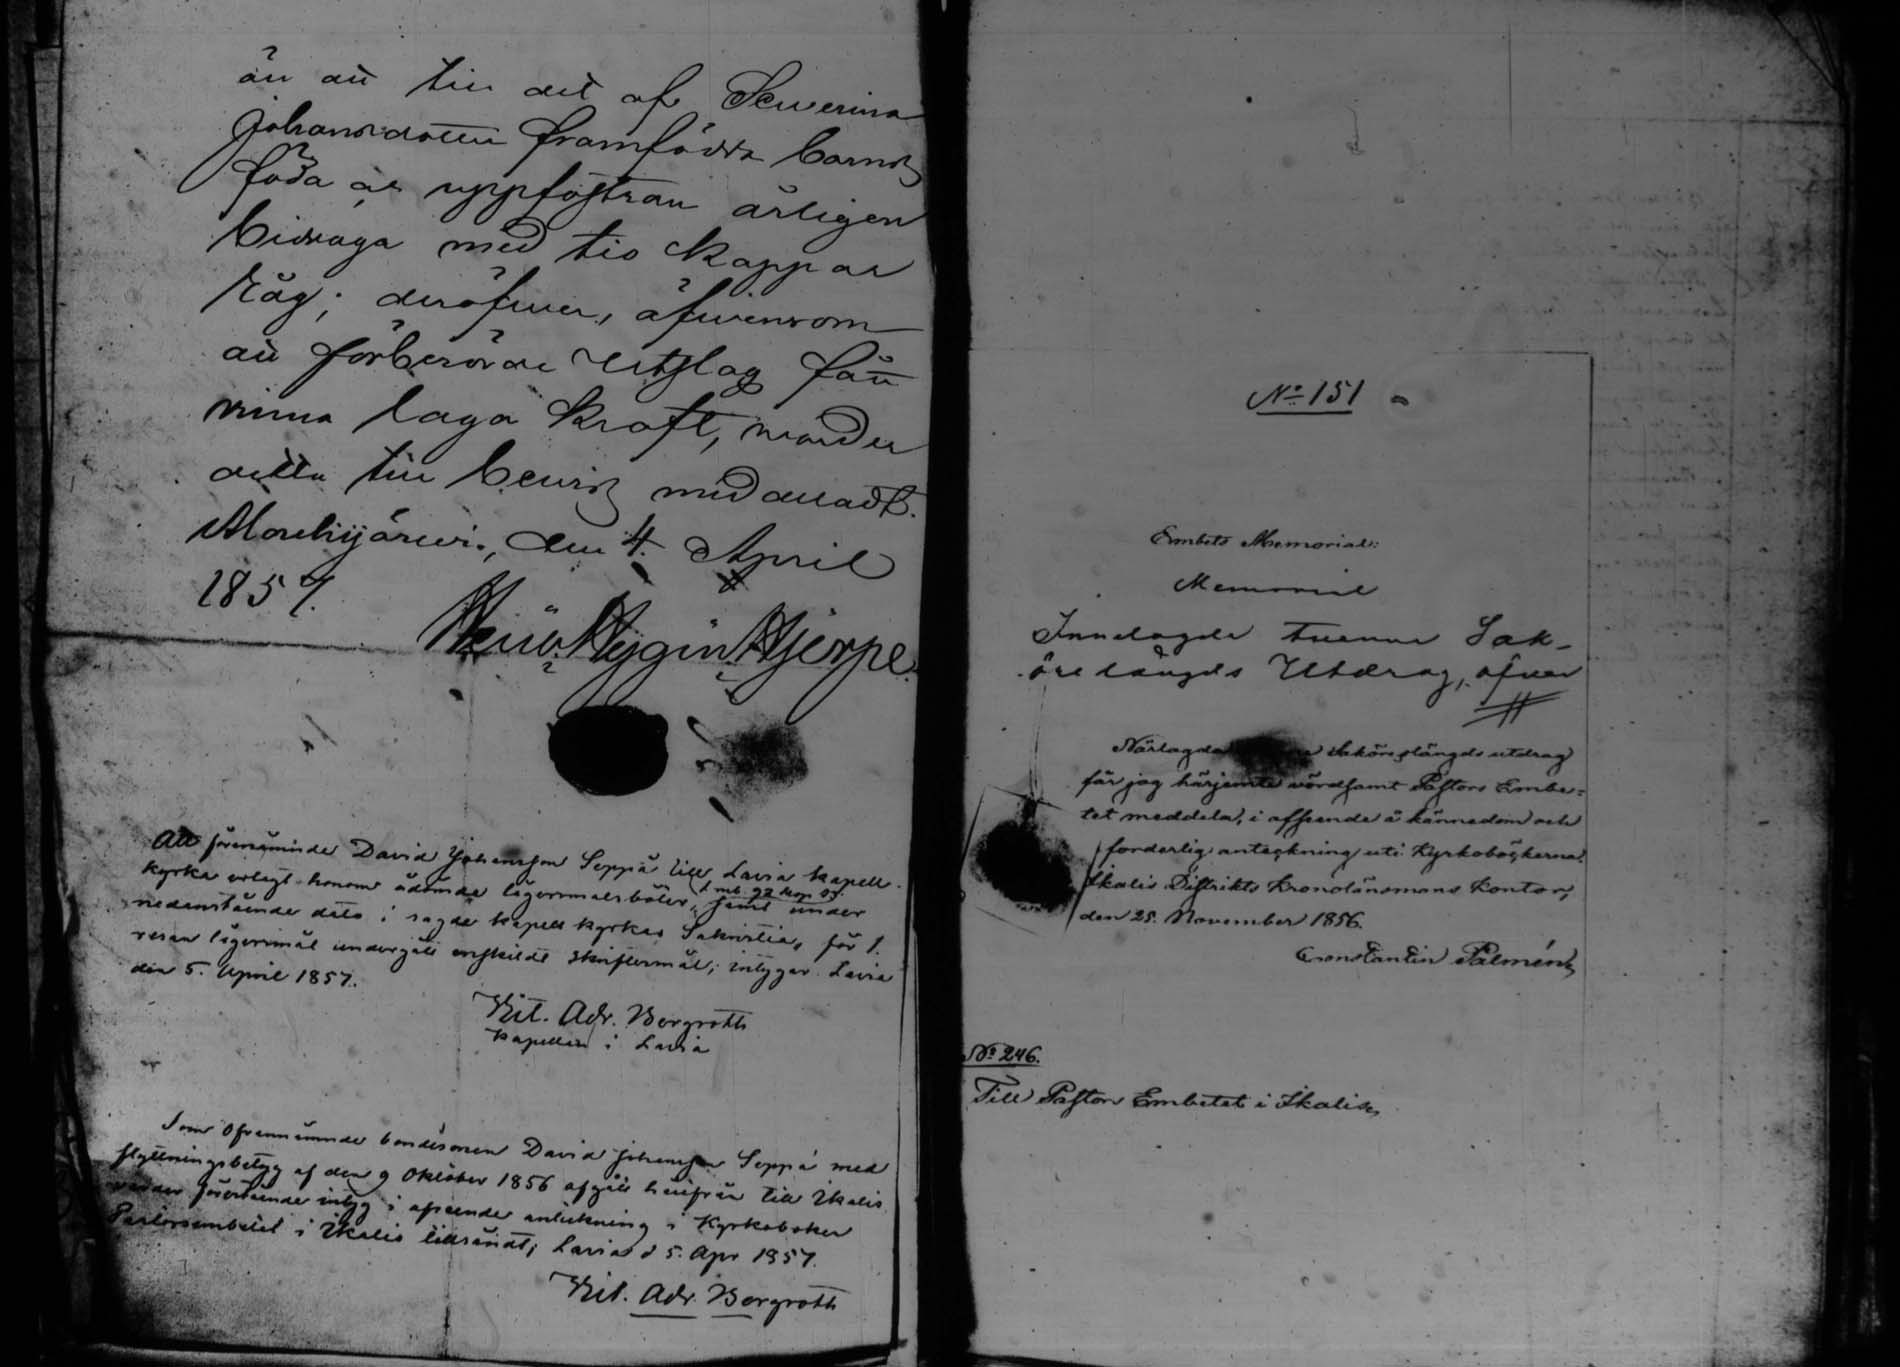 än att till det af Sewerina
Johansdotter framfödda barns
föda och uppfostran årligen
bidraga med tio kappar
Råg; deröfwer, äfwensom
att förberörde Utslag fått
vinna laga kraft, warder
detta till bewis meddeladt.
Mouhijärwi, den 4. April
1857.
Hygin Hjerpe.
Att förenämnde David Johansson Seppä till Lavia kapell-
kyrka erlagt honom ådömda lägersmålsböter, 1 rub. 92 kop. Sr samt under
nedanstående dato i sagde kapell kyrkas Sakristia, för 1.
resan lägersmål undergått enskildt skriftermål; intygar. Lavia
den 5. April 1857.
Vit. Adr. Bergroth
Kapellan i Lavia
Som ofvannämnde bondesonen David Johansson Seppä med
flyttningsbetyg af den 9 Oktober 1856 afgått härifrån till Ikalis
warder förestående intyg i afseende anteckning i Kyrkoboken
Pastorsembetet i Ikalis tillsändt; Lavia d 5. Apr 1857.
Vit. Adr. Bergroth
No 151
Embets Memorial:
Memorial
Innelagde tvenne Sak-
öre längds Utdrag, öfver
Närlagda Sakörelängds utdrag
får jag härjemte vördsamt Pastors Embe-
tet meddela, i afseende å kännedom och
forderlig anteckning uti Kyrkoböckerna.
Ikalis Distrikts Kronolänsmans Kontor,
den 25. November 1856.
Constantin Palmén
No 246.
Till Pastors Embetet i Ikalis